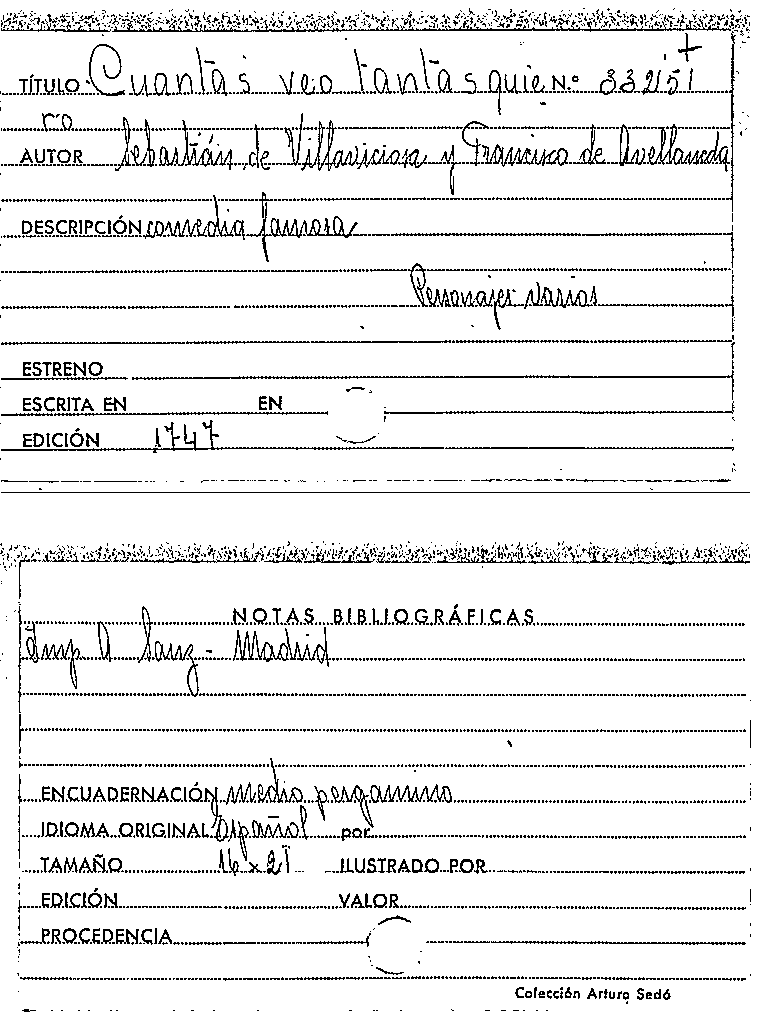 TÍTULO Cuantas veo tantas quie N.º 33215t
ro
AUTOR Sebastián de Villaviciosa y Francisco de Avellaneda
DESCRIPCIÓN comedia famosa
Personajes varios
ESTRENO
ESCRITA EN EN
EDICIÓN 1747
NOTAS BIBLIOGRÁFICAS
Imp A Sanz - Madrid
ENCUADERNACIÓN medio pergamino
IDIOMA ORIGINAL Español por
TAMAÑO 16 x 21 ILUSTRADO POR
EDICIÓN VALOR
PROCEDENCIA
Colección Arturo Sedó